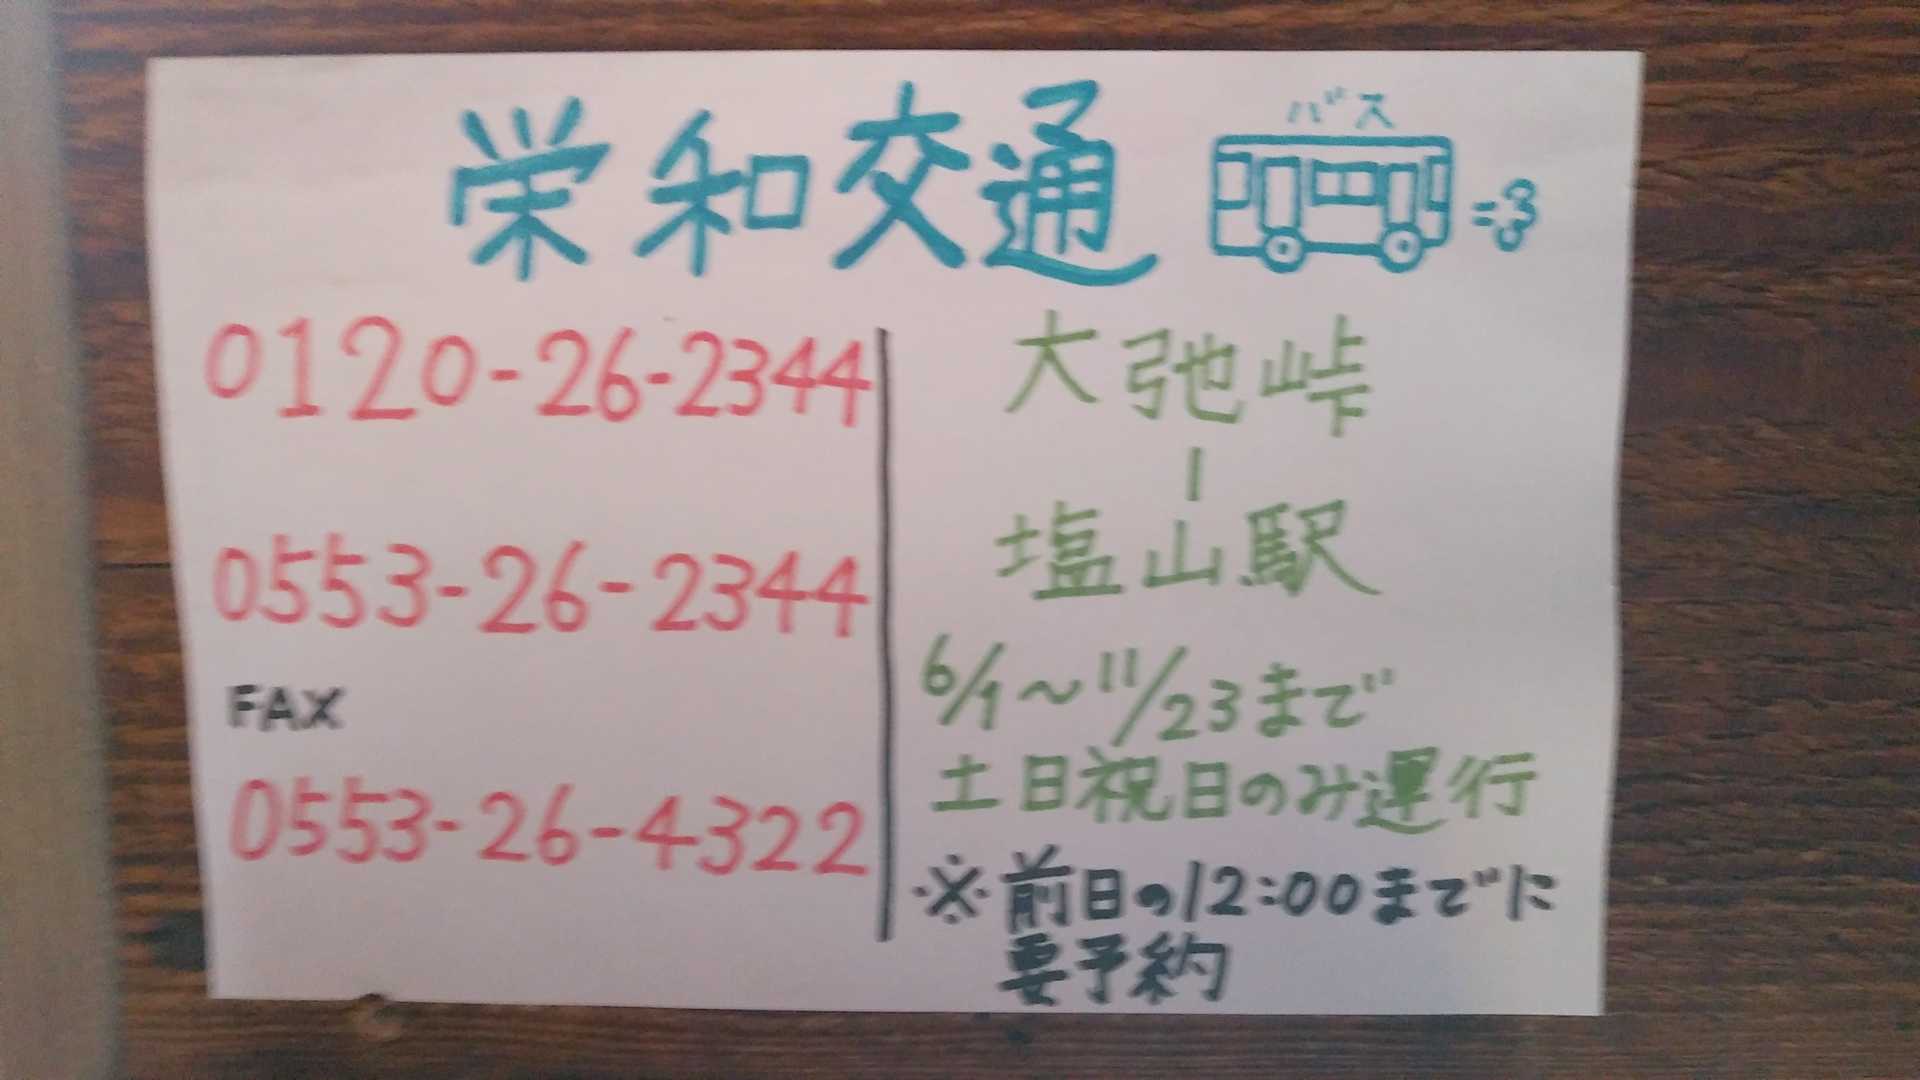 栄和交通
バス
0120-26-2344
0553-26-2344
FAX
0553-26-4322
大弛峠
|
塩山駅
6/1〜11/23まで
土日祝日のみ運行
※前日の12:00までに
要予約